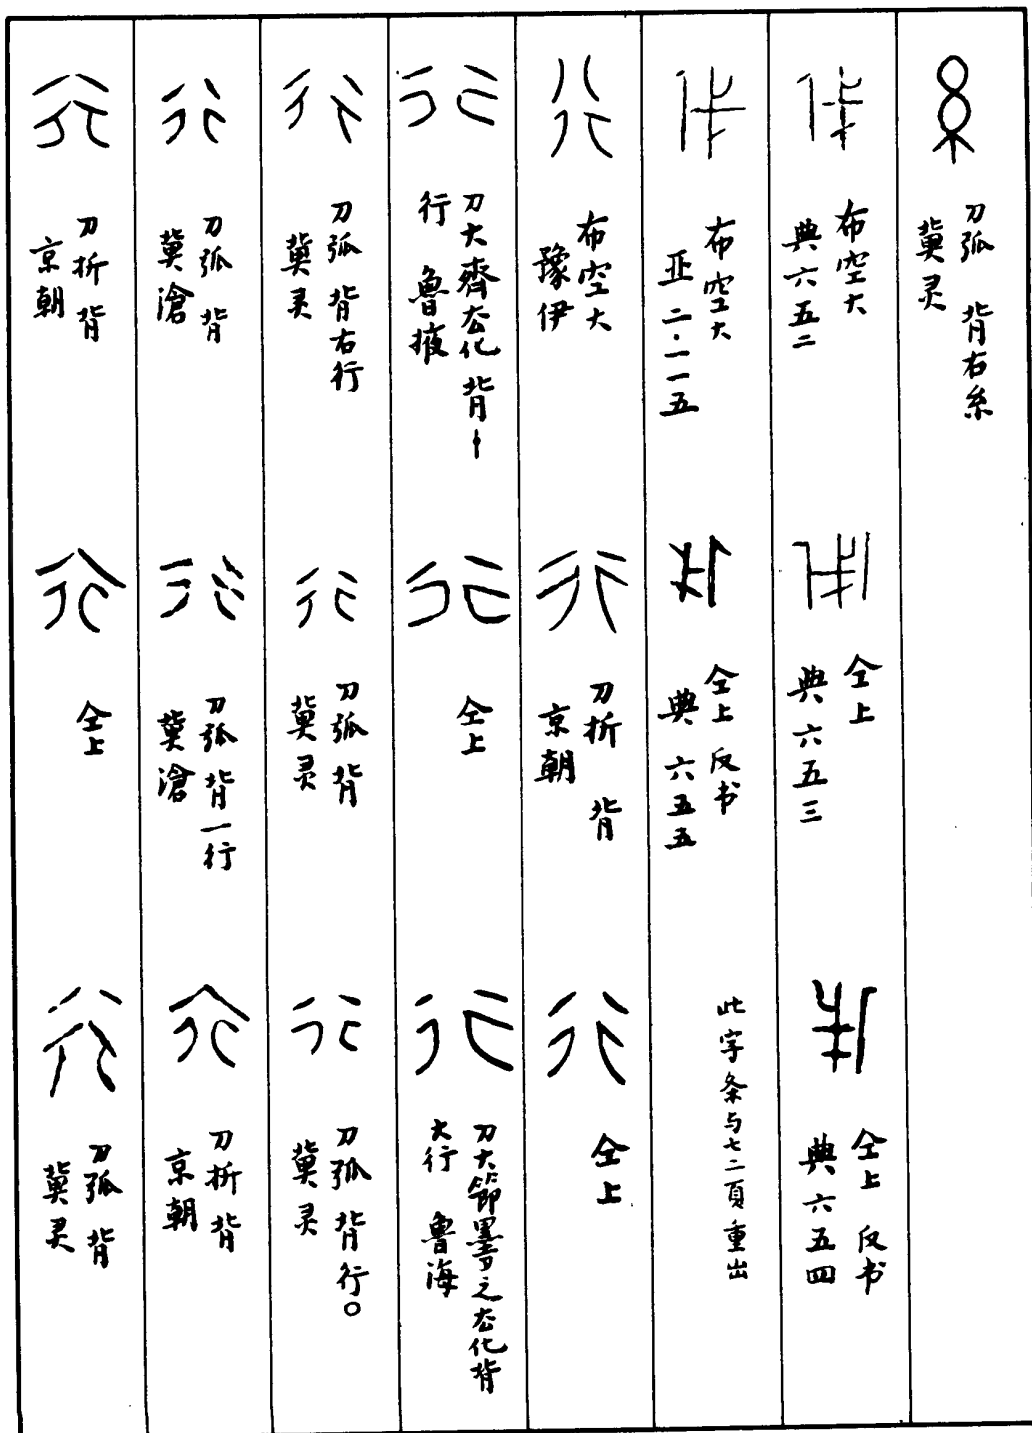 刀弧 背右糸
冀灵
布空大
典六五二
仝上
典六五三
仝上 反书
典六五四
布空大
亚 二·一一五
仝上 反书
典 六五五
此字条与七二頁重出
布空大
豫伊
刀折 背
京朝
仝上
刀大齊厺化 背
行 魯掖
仝上
刀大節墨之厺化背
大行 魯海
刀弧 背右行
冀灵
刀弧 背
冀灵
刀弧 背行〇
冀灵
刀弧 背
冀滄
刀弧 背一行
冀滄
刀折 背
京朝
刀折 背
京朝
仝上
刀弧 背
冀灵